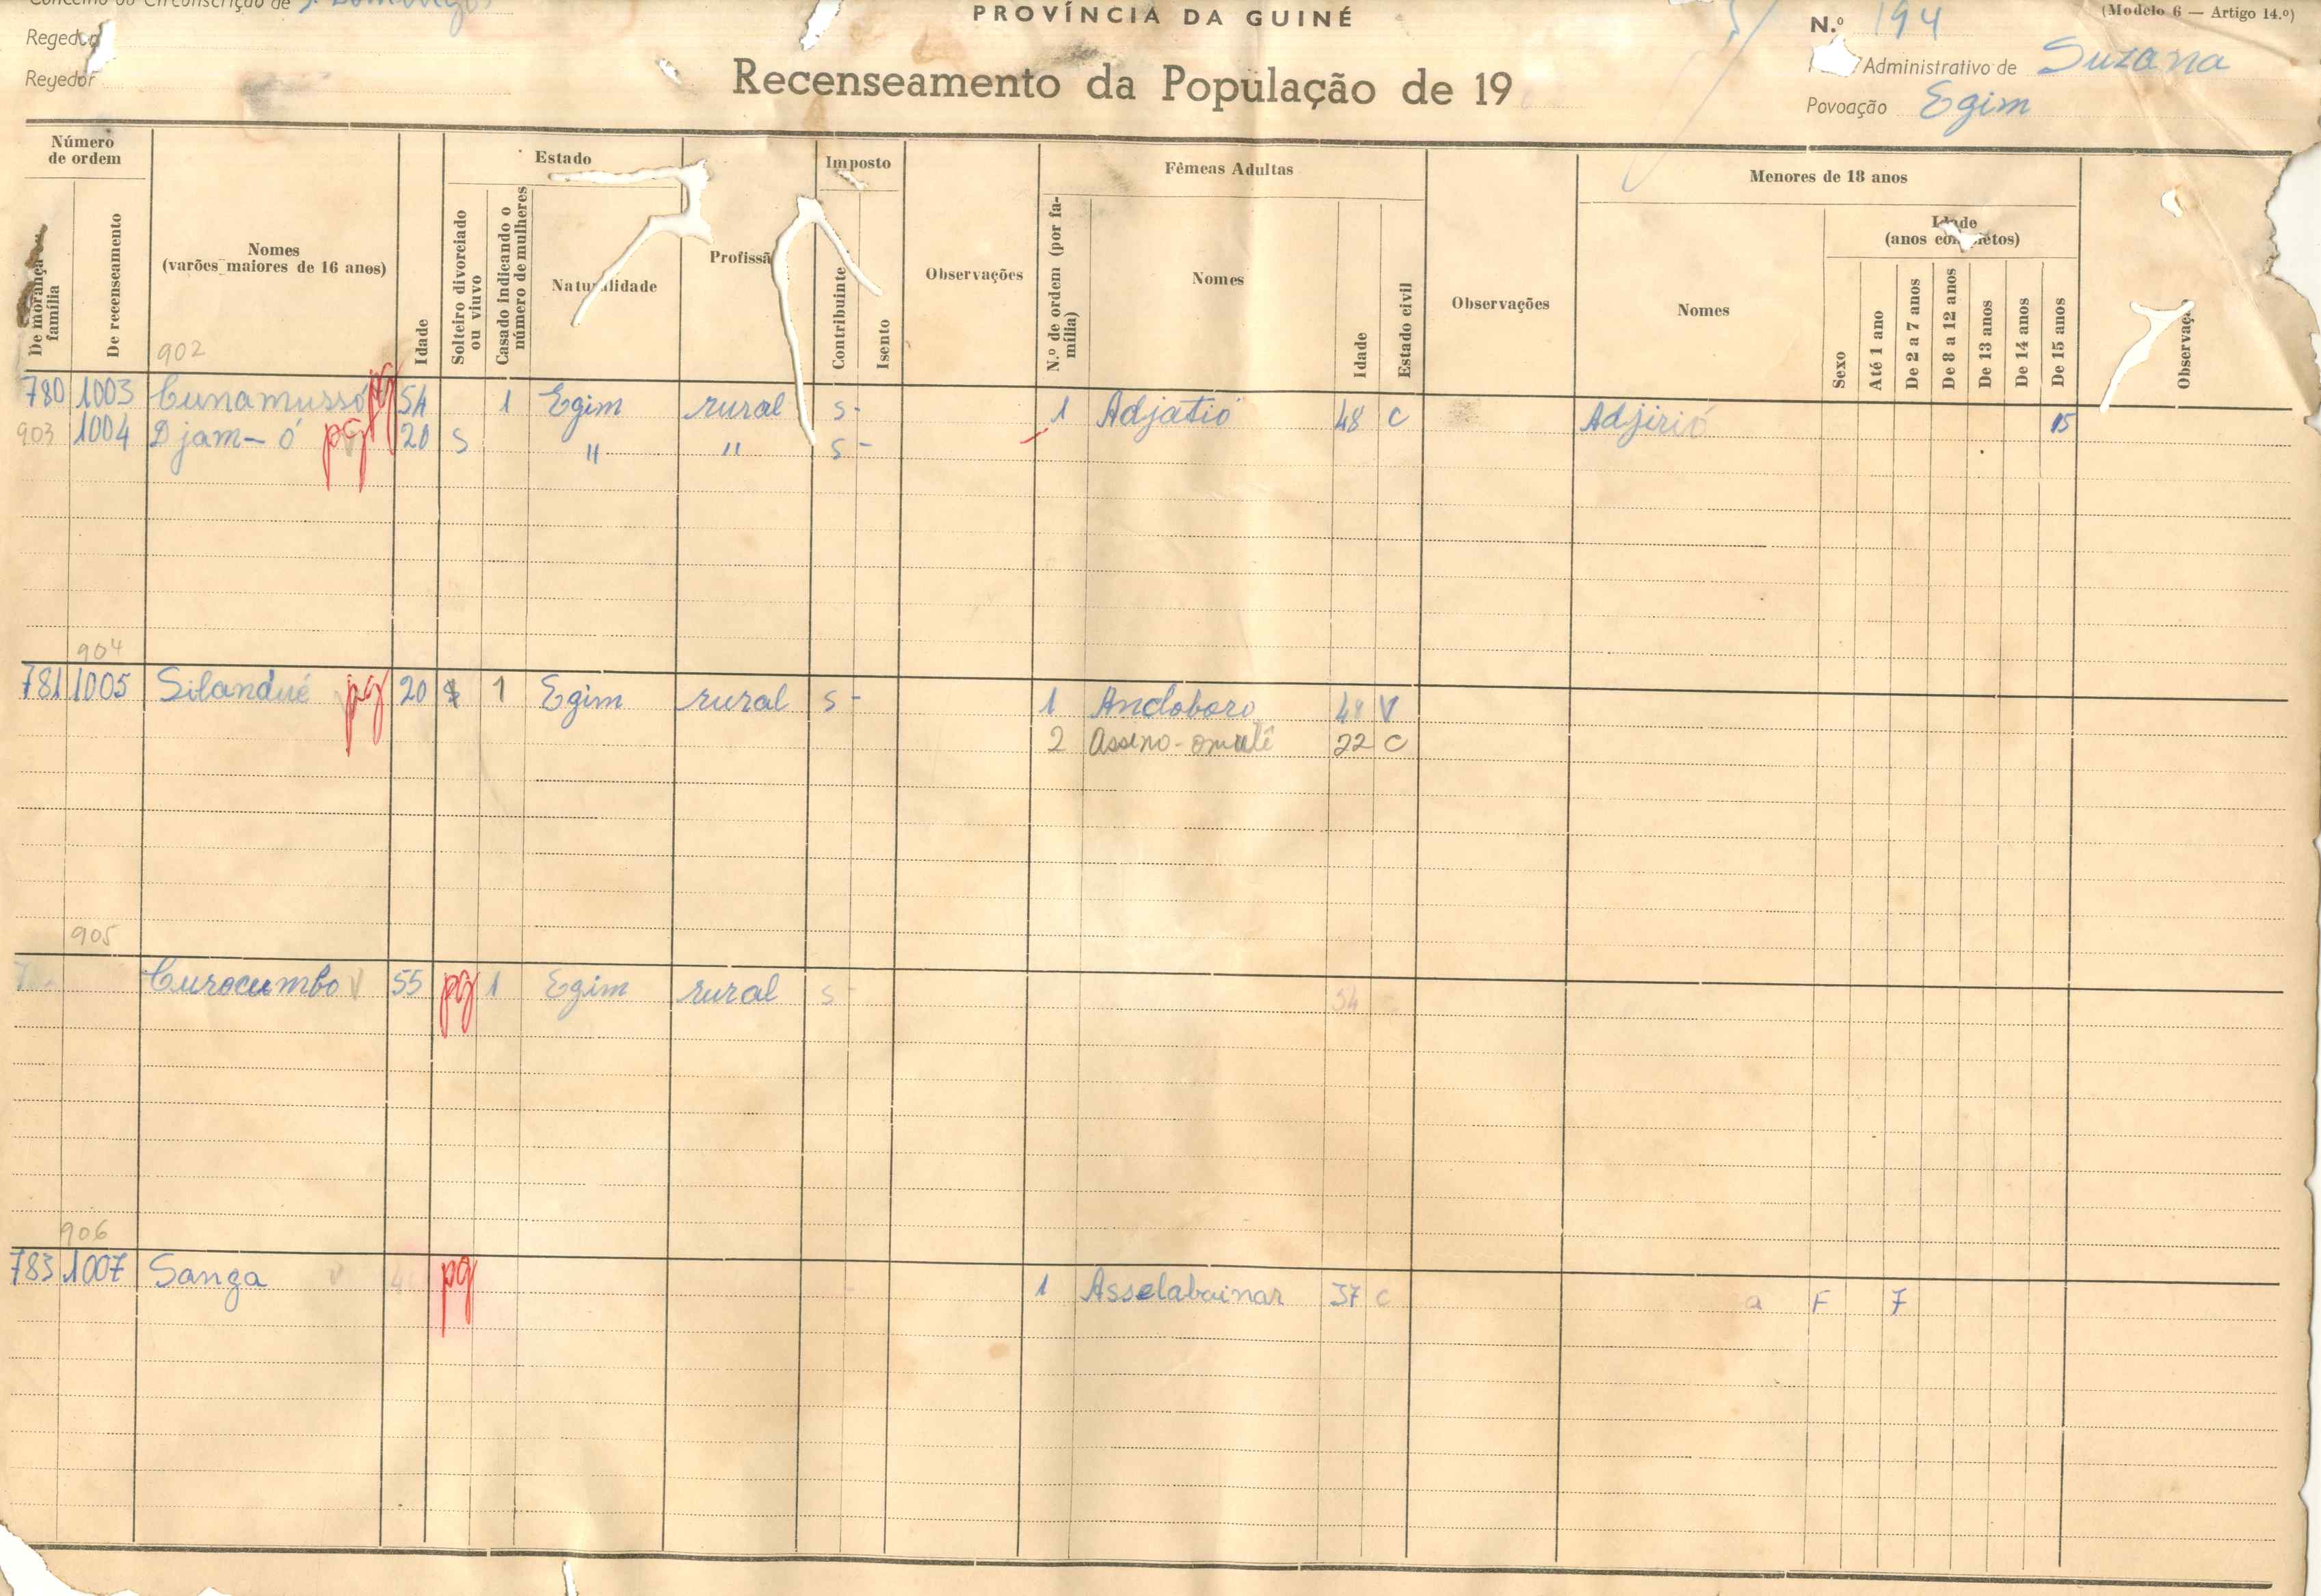 Concelho ou Circunscrição de S. Domingos
PROVÍNCIA DA GUINÉ
N.º 194
(Modelo 6 — Artigo 14.º)
Regedor
Administrativo de Suzana
Regedor
Recenseamento da População de 19
Povoação Egim
Número de ordem
De morança família
De recenseamento
Nomes (varões maiores de 16 anos)
Idade
Estado
Solteiro divorciado ou viuvo
Casado indicando o número de mulheres
Naturalidade
Profissã
Imposto
Contribuinte
Isento
Observações
Fêmeas Adultas
N.º de ordem (por família)
Nomes
Idade
Estado civil
Observações
Menores de 18 anos
Nomes
Sexo
Idade (anos completos)
Até 1 ano
De 2 a 7 anos
De 8 a 12 anos
De 13 anos
De 14 anos
De 15 anos
Observaç
902
780 1003 Cunamussó pg 54 1 Egim rural s- 1 Adjatió 48 C Adjirió 15
903 1004 Djam-ó pg 20 S " " s-
904
781 1005 Silandué pg 20 1 Egim rural s- 1 Andoboro 48 V
2 Assino-omulê 22 C
905
Curocumbo 55 pg 1 Egim rural s 54
906
783 1007 Sanga pg 1 Asselabainar 37 C a F 7